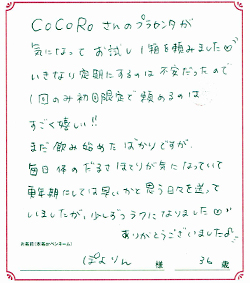 CoCoRoさんのプラセンタが
気になってお試し1箱を頼みました♡
いきなり定期にするのは不安だったので
1回のみ初回限定で頼めるのは
すごく嬉しい!!
まだ飲み始めたばかりですが、
毎日体のだるさほてりが気になっていて
更年期にしては早いかと思う日々を送って
いましたが、少しずつラクになりました♡
ありがとうございました♪
お名前(本名orペンネーム)
ぽよりん 様 36 歳